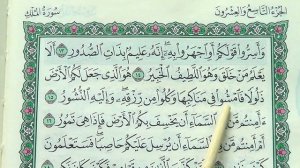 الجزء التاسع والعشرون سورة الملك
وَأَسِرُّوا۟ قَوْلَكُمْ أَوِ ٱجْهَرُوا۟ بِهِۦٓ إِنَّهُۥ عَلِيمٌۢ بِذَاتِ ٱلصُّدُورِ ١٣ أَلَا
يَعْلَمُ مَنْ خَلَقَ وَهُوَ ٱللَّطِيفُ ٱلْخَبِيرُ ١٤ هُوَ ٱلَّذِى جَعَلَ لَكُمُ ٱلْأَرْضَ
ذَلُولًا فَٱمْشُوا۟ فِى مَنَاكِبِهَا وَكُلُوا۟ مِن رِّزْقِهِۦ وَإِلَيْهِ ٱلنُّشُورُ ١٥
ءَأَمِنتُم مَّن فِى ٱلسَّمَآءِ أَن يَخْسِفَ بِكُمُ ٱلْأَرْضَ فَإِذَا هِىَ تَمُورُ ١٦
أَمْ أَمِنتُم مَّن فِى ٱلسَّمَآءِ أَن يُرْسِلَ عَلَيْكُمْ حَاصِبًا فَسَتَعْلَمُونَ